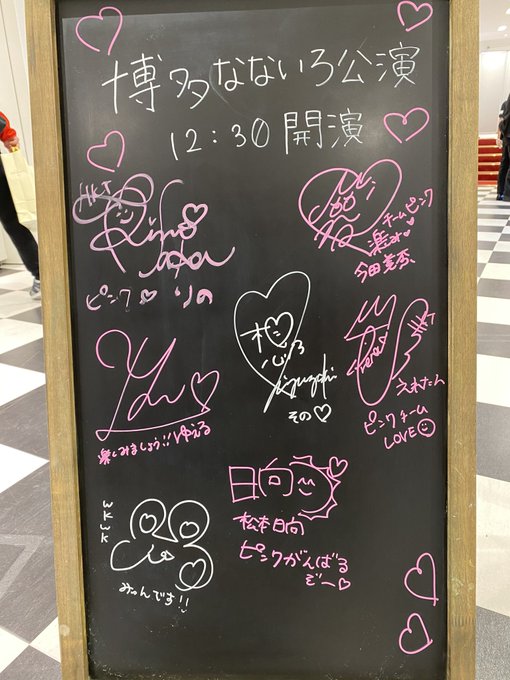 博多なないろ公演
12:30 開演
HKT
ピンク♡ りの
チームピンク
楽み♡
今田美奈
想
その♡
HKT
えれたん
ピンクチーム
LOVE
楽しみましょう!! ゆえる
日向
松本日向
ピンクがんばる
ぞー♡
WKWK
みゅんです!!